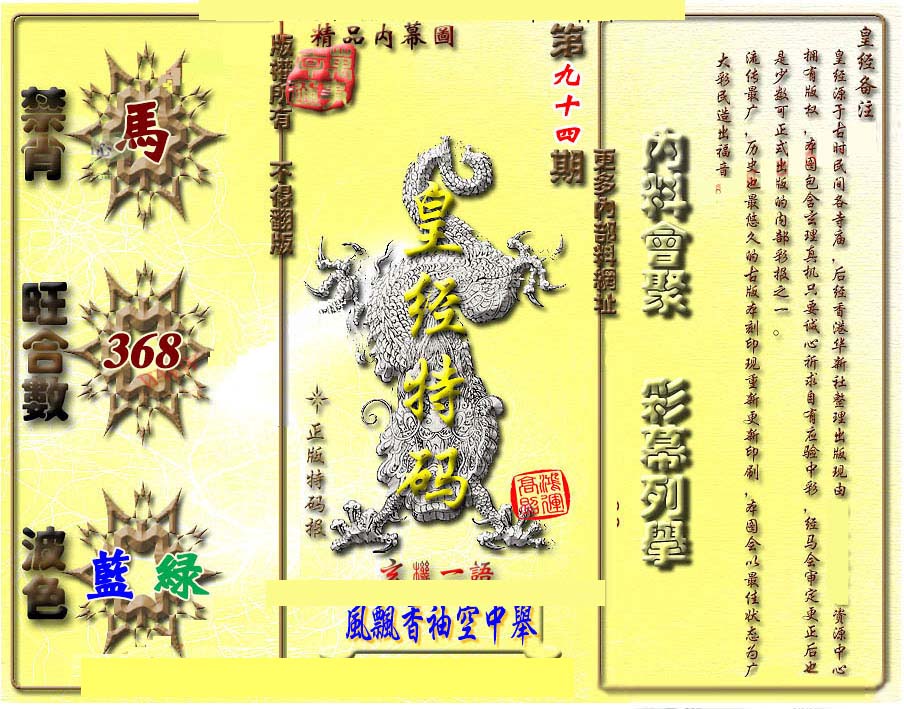 禁肖
馬
旺合數
368
波色
藍 綠
版權所有 不得翻版
精品内幕圖
第九十四期
皇经特码
正版特码报
鴻運高照
玄機一語
風飄香袖空中舉
更多內部料網址
内料會聚 彩幕列舉
皇经备注
皇经源于古时民间各寺庙,后经香港华新社整理出版现由 资源中心
拥有版权,本图包含玄理真机只要诚心祈求自有应验中彩,经马会审定更正后也
是少数可正式出版的内部彩报之一。
流传最广,历史也最悠久的古版本刻印现重新更新印刷,本图会以最佳状态为广
大彩民造出福音